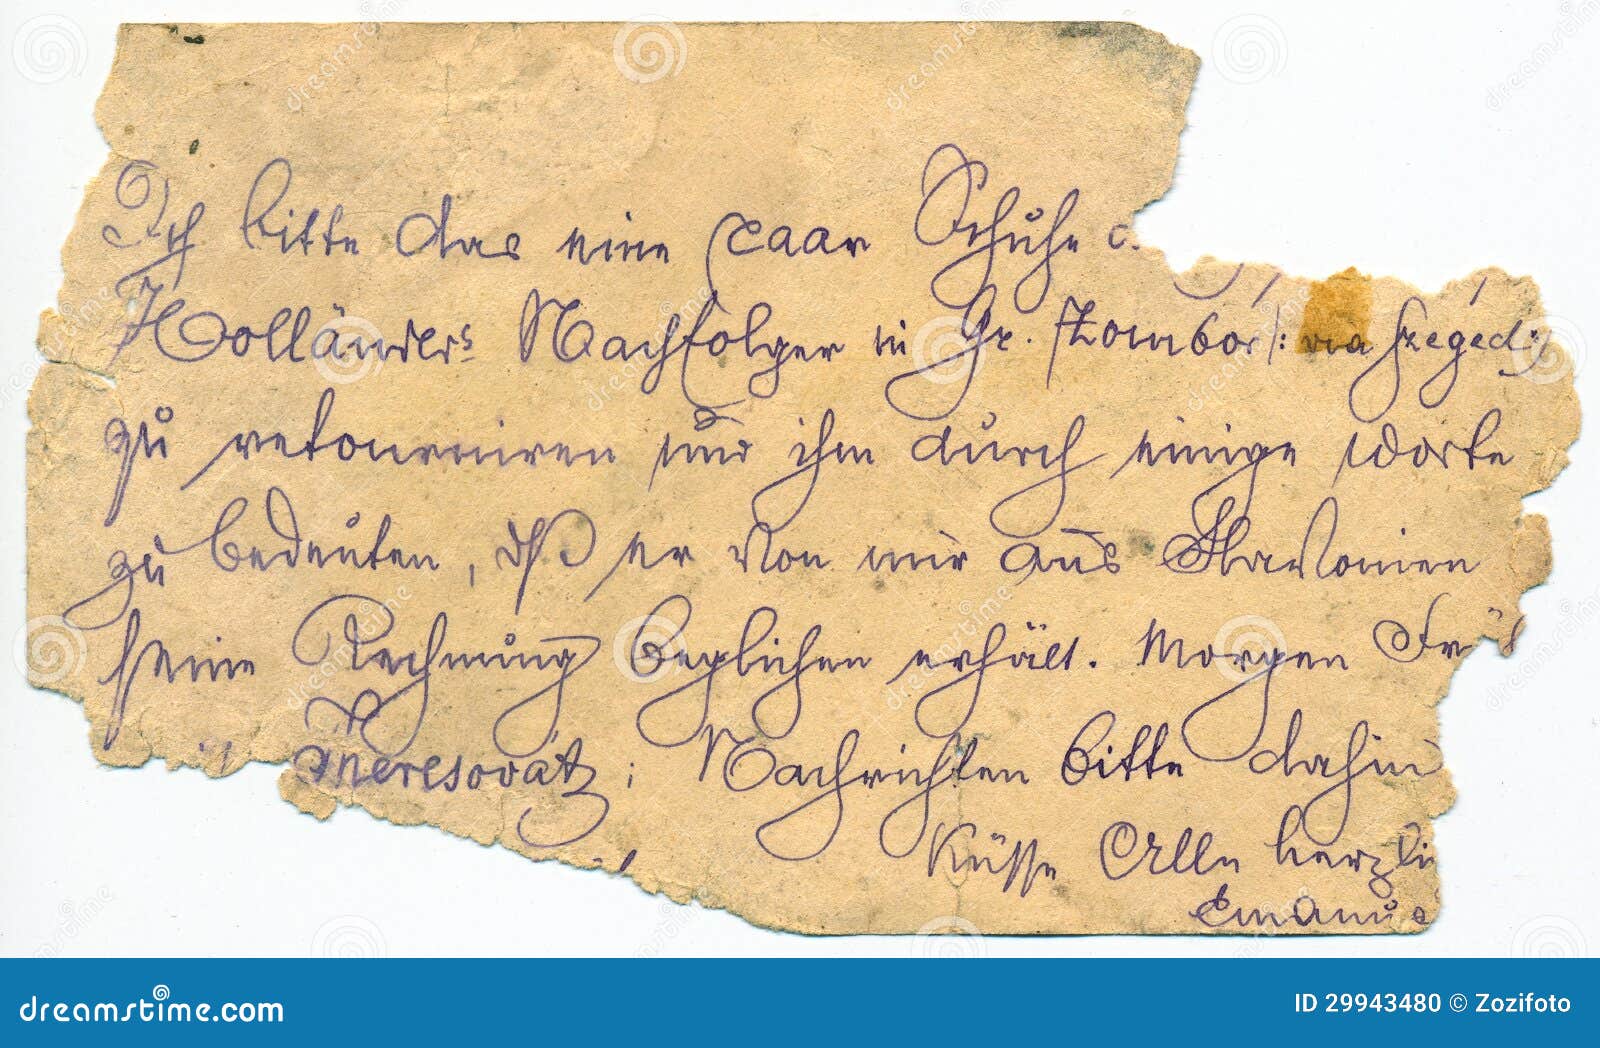 Ich bitte das eine Paar Schuhe
Holländer's Nachfolger in Gr. Zombor /: via Szeged :/
zu retourniren und ihm durch einige Worte
zu bedeuten, dß er von mir aus Slavonien
seine Rechnung beglichen erhält. Morgen Früh
Veresovátz; Nachrichten bitte dahin
Küsse Alle herzli
Emanue
dreamstime.com
ID 29943480 © Zozifoto